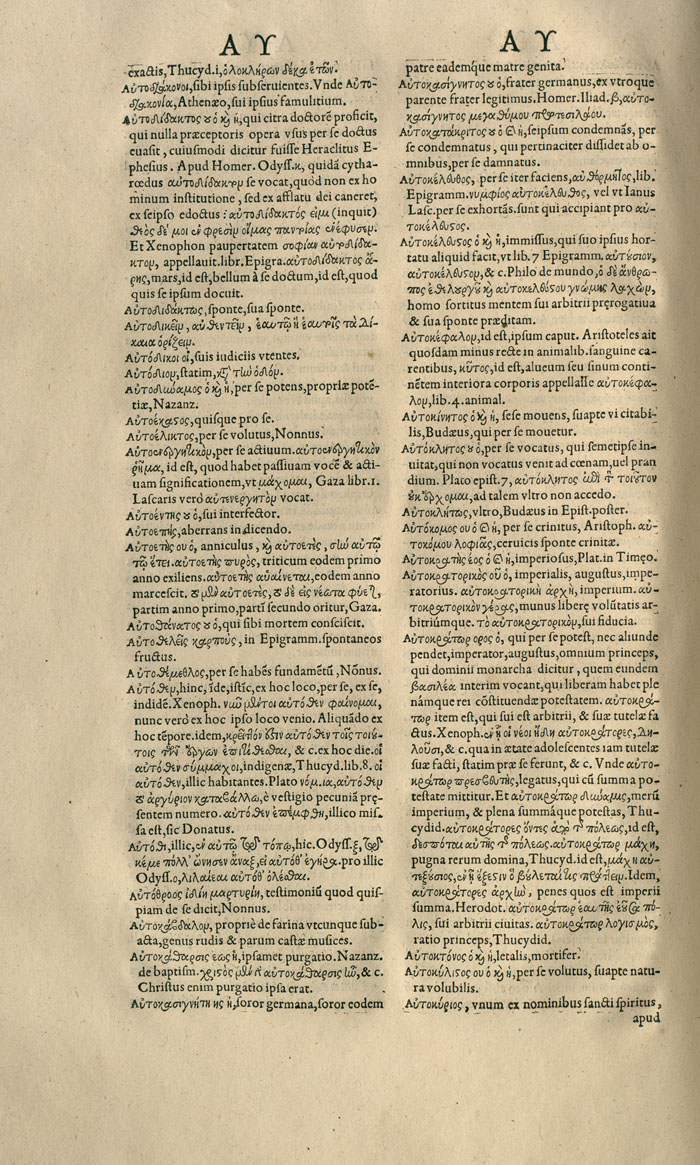 ΑΥ
exactis, Thucyd.i, ὁλοκλήρων δέκα ἐτῶν.
Αὐτοδιάκονοι, sibi ipsis subseruientes. Vnde Αὐτο-
διακονία, Athenæo, sui ipsius famulitium.
Αὐτοδίδακτος ου ὁ καὶ ἡ, qui citra doctorē proficit,
qui nulla præceptoris opera vsus per se doctus
euasit, cuiusmodi dicitur fuisse Heraclitus E-
phesius. Apud Homer. Odyss.κ, quidā cytha-
rœdus αὐτοδίδακτον se vocat, quòd non ex ho
minum institutione, sed ex afflatu dei caneret,
ex seipso edoctus: αὐτοδίδακτός εἰμι (inquit)
θεὸς δέ μοι ἐν φρεσὶν οἴμας παντοίας ἐνέφυσεν.
Et Xenophon paupertatem σοφίαν αὐτοδίδα-
κτον, appellauit. libr. Epigra. αὐτοδίδακτος ἄ-
ρης, mars, id est, bellum à se doctum, id est, quod
quis se ipsum docuit.
Αὐτοδιδάκτως, sponte, sua sponte.
Αὐτοδικεῖν, αὐθεντεῖν, ἑαυτῷ ἢ ἑαυτοῖς τὰ δί-
καια ὁρίζειν.
Αὐτόδικοι οἱ, suis iudiciis vtentes.
Αὐτόδιον, statim, ἐξ τὴν ὁδόν.
Αὐτοδύναμος ὁ καὶ ἡ, per se potens, propriæ potē-
tiæ, Nazanz.
Αὐτοέκαστος, quisque pro se.
Αὐτοέλικτος, per se volutus, Nonnus.
Αὐτοενεργητικὸν, per se actiuum. αὐτοενεργητικὸν
ῥῆμα, id est, quod habet passiuam vocē & acti-
uam significationem, vt μάχομαι, Gaza libr.1.
Lascaris verò αὐτενεργητὸν vocat.
Αὐτοέντης ου ὁ, sui interfector.
Αὐτοεπὴς, aberrans in dicendo.
Αὐτοετὴς ου ὁ, anniculus, καὶ αὐτοετὲς, σὺν αὐτῷ
τῷ ἔτει. αὐτοετὴς πυρὸς, triticum eodem primo
anno exiliens. αὐτοετὴς αὐαίνεται, eodem anno
marcescit, οὐ μὴν αὐτοετὲς, οὐδ' εἰς νέωτα φύει,
partim anno primo, partī secundo oritur, Gaza.
Αὐτοθάνατος ου ὁ, qui sibi mortem consciscit.
Αὐτοθελεῖς καρποὺς, in Epigramm. spontaneos
fructus.
Αὐτοθέμεθλος, per se habēs fundamētū, Nōnus.
Αὐτόθεν, hinc, īde, istīc, ex hoc loco, per se, ex se,
indidē. Xenoph. νυνὶ μέντοι αὐτόθεν φαίνομαι,
nunc verò ex hoc ipso loco venio. Aliquādo ex
hoc tēpore. idem, κρεῖττον οὖν αὐτόθεν τοῖς τού-
τοις τῶν ἔργων ἐπιτίθεσθαι, & c. ex hoc die. οἱ
αὐτόθεν σύμμαχοι, indigenæ, Thucyd. lib. 8. οἱ
αὐτόθεν, illic habitantes. Plato νόμ.ια, αὐτόθεν
τὸ ἀργύριον καταβάλλω, è vestigio pecuniā præ-
sentem numero. αὐτόθεν ἐπέμφθη, illico mis-
sa est, sic Donatus.
Αὐτόθι, illic, ἐν αὐτῷ τῷ τόπῳ, hic. Odyss.ξ,
κέμε πολλ' ὤνησεν ἄναξ, εἰ αὐτόθ' ἐγήρα. pro illic
Odyss.ο, λιλαίεαι αὐτόθ' ὀλέσθαι.
Αὐτόθροος ἰδίη μαρτυρίη, testimoniū quod quis-
piam de se dicit, Nonnus.
Αὐτοκάβδαλον, propriè de farina vtcunque sub-
acta, genus rudis & parum castæ musices.
Αὐτοκάθαρσις εως ἡ, ipsamet purgatio. Nazanz.
de baptism. χριστὸς μὲν αὐτοκάθαρσις ὢν, & c.
Christus enim purgatio ipsa erat.
Αὐτοκασιγνήτη ης ἡ, soror germana, soror eodem
ΑΥ
patre eademque matre genita.
Αὐτοκασίγνητος ου ὁ, frater germanus, ex vtroque
parente frater legitimus. Homer. Iliad. β, αὐτο-
κασίγνητος μεγαθύμου πρωτεσιλάου.
Αὐτοκατάκριτος ου ὁ καὶ ἡ, seipsum condemnās, per
se condemnatus, qui pertinaciter dissidet ab o-
mnibus, per se damnatus.
Αὐτοκέλευθος, per se iter faciens, αὐθόρμητος, lib.
Epigramm. νυμφίος αὐτοκέλευθος, vel vt Ianus
Lasc. per se exhortās. sunt qui accipiant pro αὐ-
τοκέλευστος.
Αὐτοκέλευστος ὁ καὶ ἡ, immissus, qui suo ipsius hor-
tatu aliquid facit, vt lib. 7 Epigramm. αὐτόσιον,
αὐτοκέλευστον, & c. Philo de mundo, ὁ δὲ ἄνθρω-
πος ἐθελουργοῦ καὶ αὐτοκελεύστου γνώμης λαχὼν,
homo sortitus mentem sui arbitrii prærogatiua
& sua sponte præditam.
Αὐτοκέφαλον, id est, ipsum caput. Aristoteles ait
quosdam minus recte in animalib. sanguine ca-
rentibus, κῦτος, id est, alueum seu sinum conti-
nētem interiora corporis appellasse αὐτοκέφα-
λον, lib. 4. animal.
Αὐτοκίνητος ὁ καὶ ἡ, sese mouens, suapte vi citabi-
lis, Budæus, qui per se mouetur.
Αὐτόκλητος ου ὁ, per se vocatus, qui semetipse in-
uitat, qui non vocatus venit ad cœnam, uel pran
dium. Plato epist. 7, αὐτόκλητος ἐπὶ τὸ τοιοῦτον
οὐκ ἔρχομαι, ad talem vltro non accedo.
Αὐτοκλήτως, vltro, Budæus in Epist. poster.
Αὐτόκομος ου ὁ καὶ ἡ, per se crinitus, Aristoph. αὐ-
τοκόμου λοφιᾶς, ceruicis sponte crinitæ.
Αὐτοκρατὴς έος ὁ καὶ ἡ, imperiosus, Plat. in Timęo.
Αὐτοκρατορικὸς οῦ ὁ, imperialis, augustus, impe-
ratorius. αὐτοκρατορικὴ ἀρχὴ, imperium. αὐ-
τοκρατορικὸν γέρας, munus liberę volūtatis ar-
bitriúmque. τὸ αὐτοκρατορικὸν, sui fiducia.
Αὐτοκράτωρ ορος ὁ, qui per se potest, nec aliunde
pendet, imperator, augustus, omnium princeps,
qui dominii monarcha dicitur, quem eundem
βασιλέα interim vocant, qui liberam habet ple
námque rei cōstituendæ potestatem. αὐτοκρά-
τωρ item est, qui sui est arbitrii, & suæ tutelæ fa
ctus. Xenoph. ἐν ᾗ οἱ νέοι ἤδη αὐτοκράτορες, δη-
λοῦσι, & c. qua in ætate adolescentes iam tutelæ
suæ facti, statim præ se ferunt, & c. Vnde αὐτο-
κράτωρ πρεσβευτὴς, legatus, qui cū summa po-
testate mittitur. Et αὐτοκράτωρ δύναμις, merū
imperium, & plena summáque potestas, Thu-
cydid. αὐτοκράτορες ὄντες ἀπὸ τῆς πόλεως, id est,
δεσπόται αὐτῆς τῆς πόλεως. αὐτοκράτωρ μάχη,
pugna rerum domina, Thucyd. id est, μάχη αὐ-
τεξούσιος, ἐν ᾗ ἔξεστιν ὃ βούλεταί τις πράττειν. Idem,
αὐτοκράτορες ἀρχὴν, penes quos est imperii
summa. Herodot. αὐτοκράτωρ ἑαυτῆς ἐοῦσα πό-
λις, sui arbitrii ciuitas. αὐτοκράτωρ λογισμὸς,
ratio princeps, Thucydid.
Αὐτοκτόνος ὁ καὶ ἡ, letalis, mortifer.
Αὐτοκύλιστος ου ὁ καὶ ἡ, per se volutus, suapte natu-
ra volubilis.
Αὐτοκύριος, vnum ex nominibus sancti spiritus,
apud